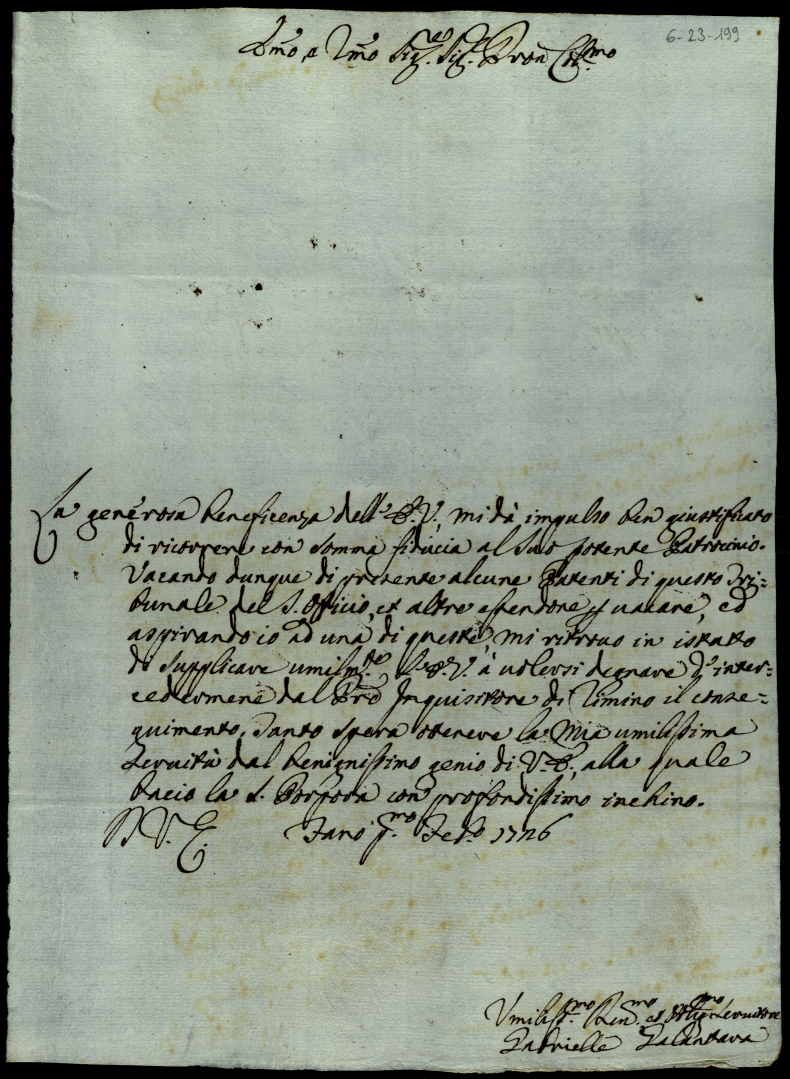 6-23-199
Emo, e Rmo Sig.re Sig.re Pron Col.mo
La generosa beneficenza dell' E. V. mi dà impulso ben giustificato
di ricorrere con somma fiducia al suo potente Patrocinio.
Vacando dunque di presente alcune Patenti di questo Tri-
bunale del S. Officio, et altre essendone p vacare, ed
aspirando io ad una di queste, mi ritrovo in istato
di supplicare umilm.te l'E. V. à volersi degnare d'inter-
cedermene dal Pre Inquisitore di Rimino il conse-
guimento. Tanto spera ottenere la mia umilissima
servitù dal benignissimo genio di V. E., alla quale
bacio la S. Porpora con profondissimo inchino.
D V. E. Fano p.mo Feb.o 1726
Umiliss.mo Den.mo et Obligmo Servitore
Gabrielle Galantara